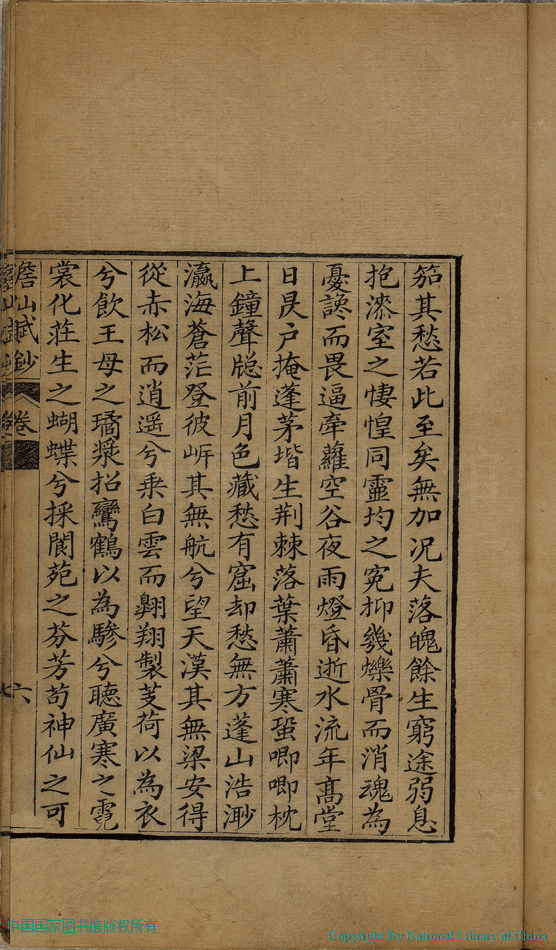 笳其愁若此至矣無加况夫落魄餘生窮途弱息
抱漆室之悽惶同靈均之冤抑幾爍骨而消魂為
憂讒而畏逼牽蘿空谷夜雨燈昏逝水流年高堂
日昃户掩蓬茅堦生荆棘落葉蕭蕭寒蛩唧唧枕
上鐘聲牕前月色藏愁有窟却愁無方蓬山浩渺
瀛海蒼茫登彼㟁其無航兮望天漢其無梁安得
從赤松而逍遥兮乗白雲而翱翔製芰荷以為衣
兮飲王母之璚漿招鸞鶴以為驂兮聽廣寒之霓
裳化莊生之蝴蝶兮採閬苑之芬芳苟神仙之可
詹山賦鈔
卷
六
中国国家图书馆版权所有
Copyright By National Library of China